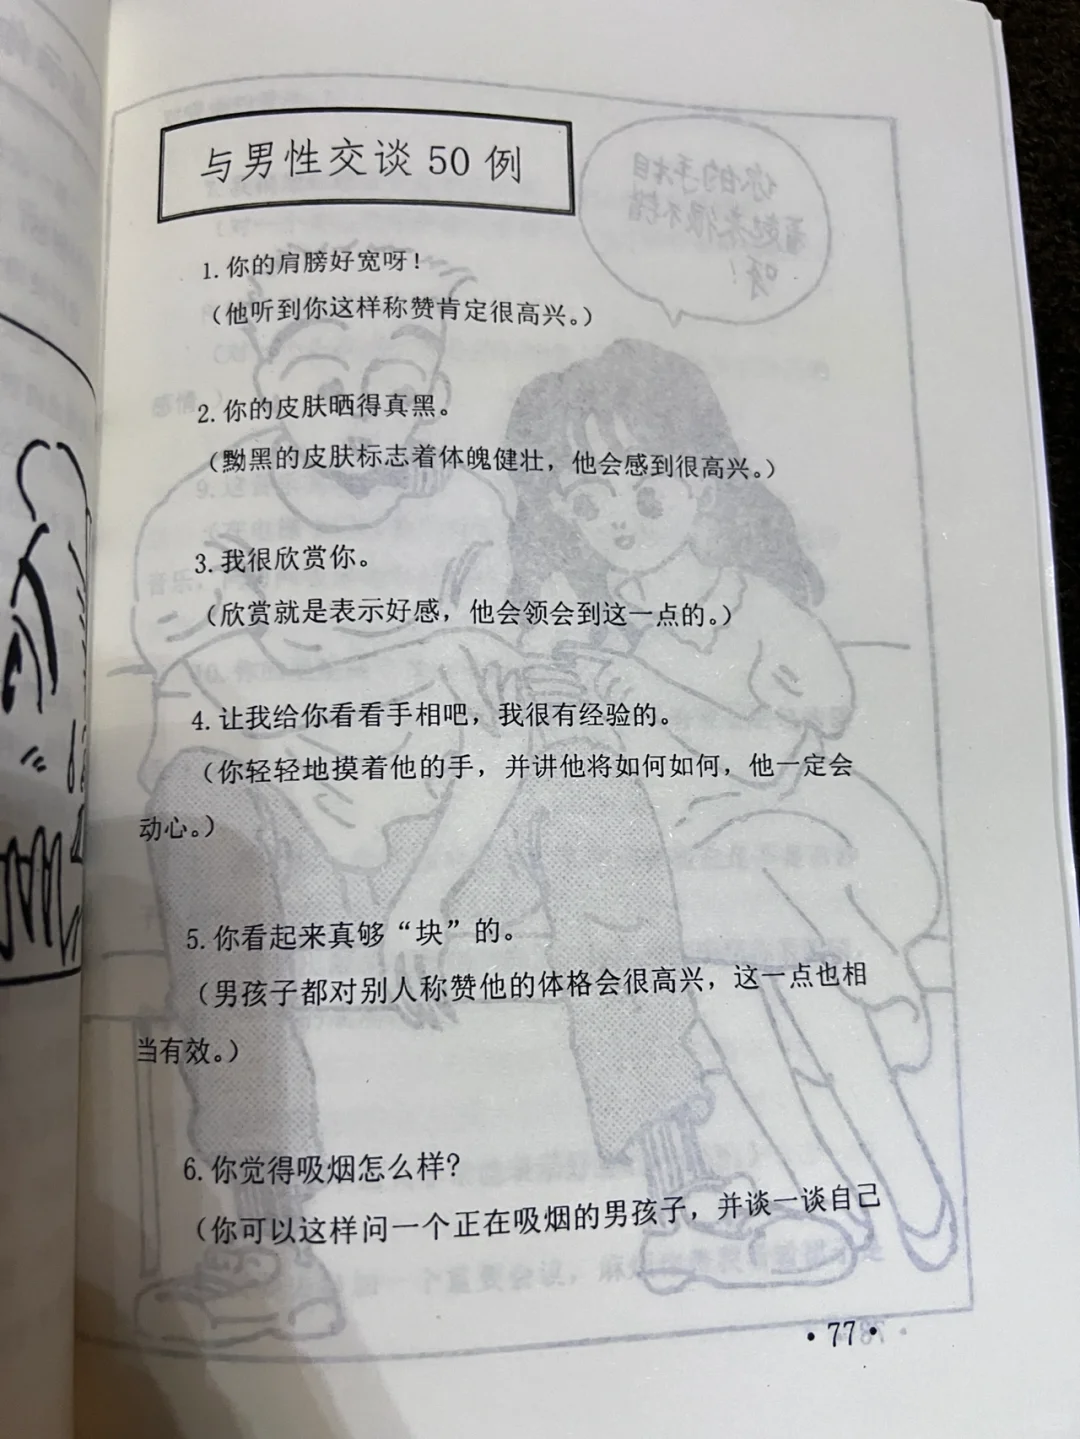 与男性交谈 50 例
你的手相
看起来很不错
呀！
1.你的肩膀好宽呀！
（他听到你这样称赞肯定很高兴。）
2.你的皮肤晒得真黑。
（黝黑的皮肤标志着体魄健壮，他会感到很高兴。）
3.我很欣赏你。
（欣赏就是表示好感，他会领会到这一点的。）
4.让我给你看看手相吧，我很有经验的。
（你轻轻地摸着他的手，并讲他将如何如何，他一定会
动心。）
5.你看起来真够“块”的。
（男孩子都对别人称赞他的体格会很高兴，这一点也相
当有效。）
6.你觉得吸烟怎么样？
（你可以这样问一个正在吸烟的男孩子，并谈一谈自己
·77·